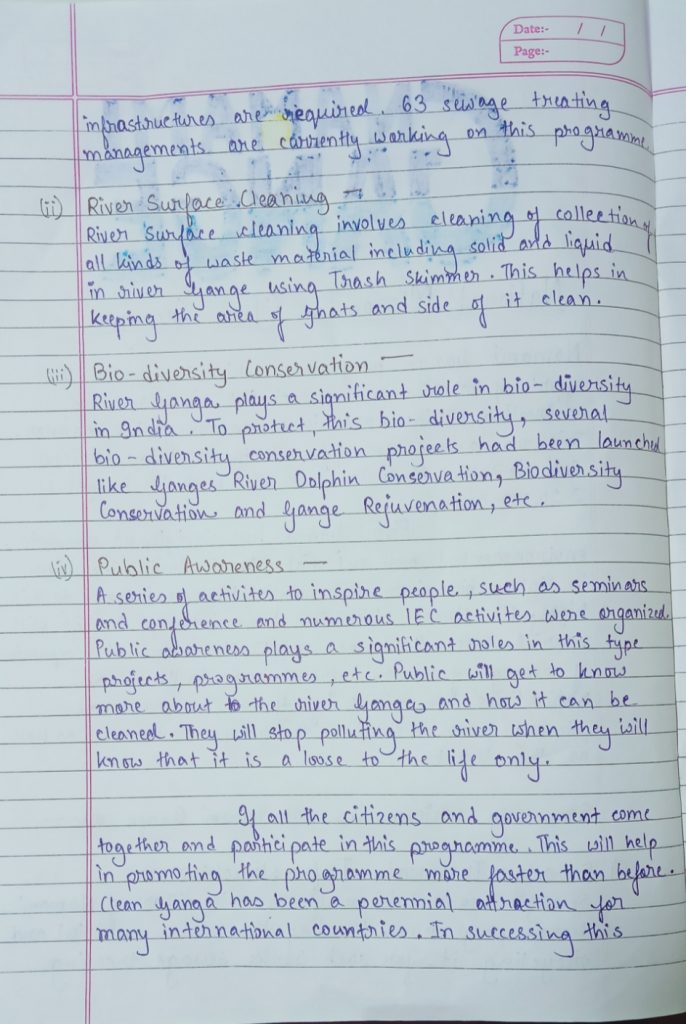 Date:- / /
Page:-
infrastructures are required. 63 sewage treating
managements are currently working on this programme
(ii) River Surface Cleaning —
River Surface cleaning involves cleaning of collection of
all kinds of waste material including solid and liquid
in river Gange using Trash Skimmer. This helps in
keeping the area of ghats and side of it clean.
(iii) Bio-diversity Conservation —
River Ganga plays a significant role in bio-diversity
in India. To protect, this bio-diversity, several
bio-diversity conservation projects had been launched
like Ganges River Dolphin Conservation, Biodiversity
Conservation and Gange Rejuvenation, etc.
(iv) Public Awareness —
A series of activites to inspire people, such as seminars
and conference and numerous IEC activites were organized.
Public awareness plays a significant roles in this type
projects, programmes, etc. Public will get to know
more about to the river Ganga and how it can be
cleaned. They will stop polluting the river when they will
know that it is a loose to the life only.
If all the citizens and government come
together and participate in this programme. This will help
in promoting the programme more faster than before.
Clean Ganga has been a perennial attraction for
many international countries. In successing this